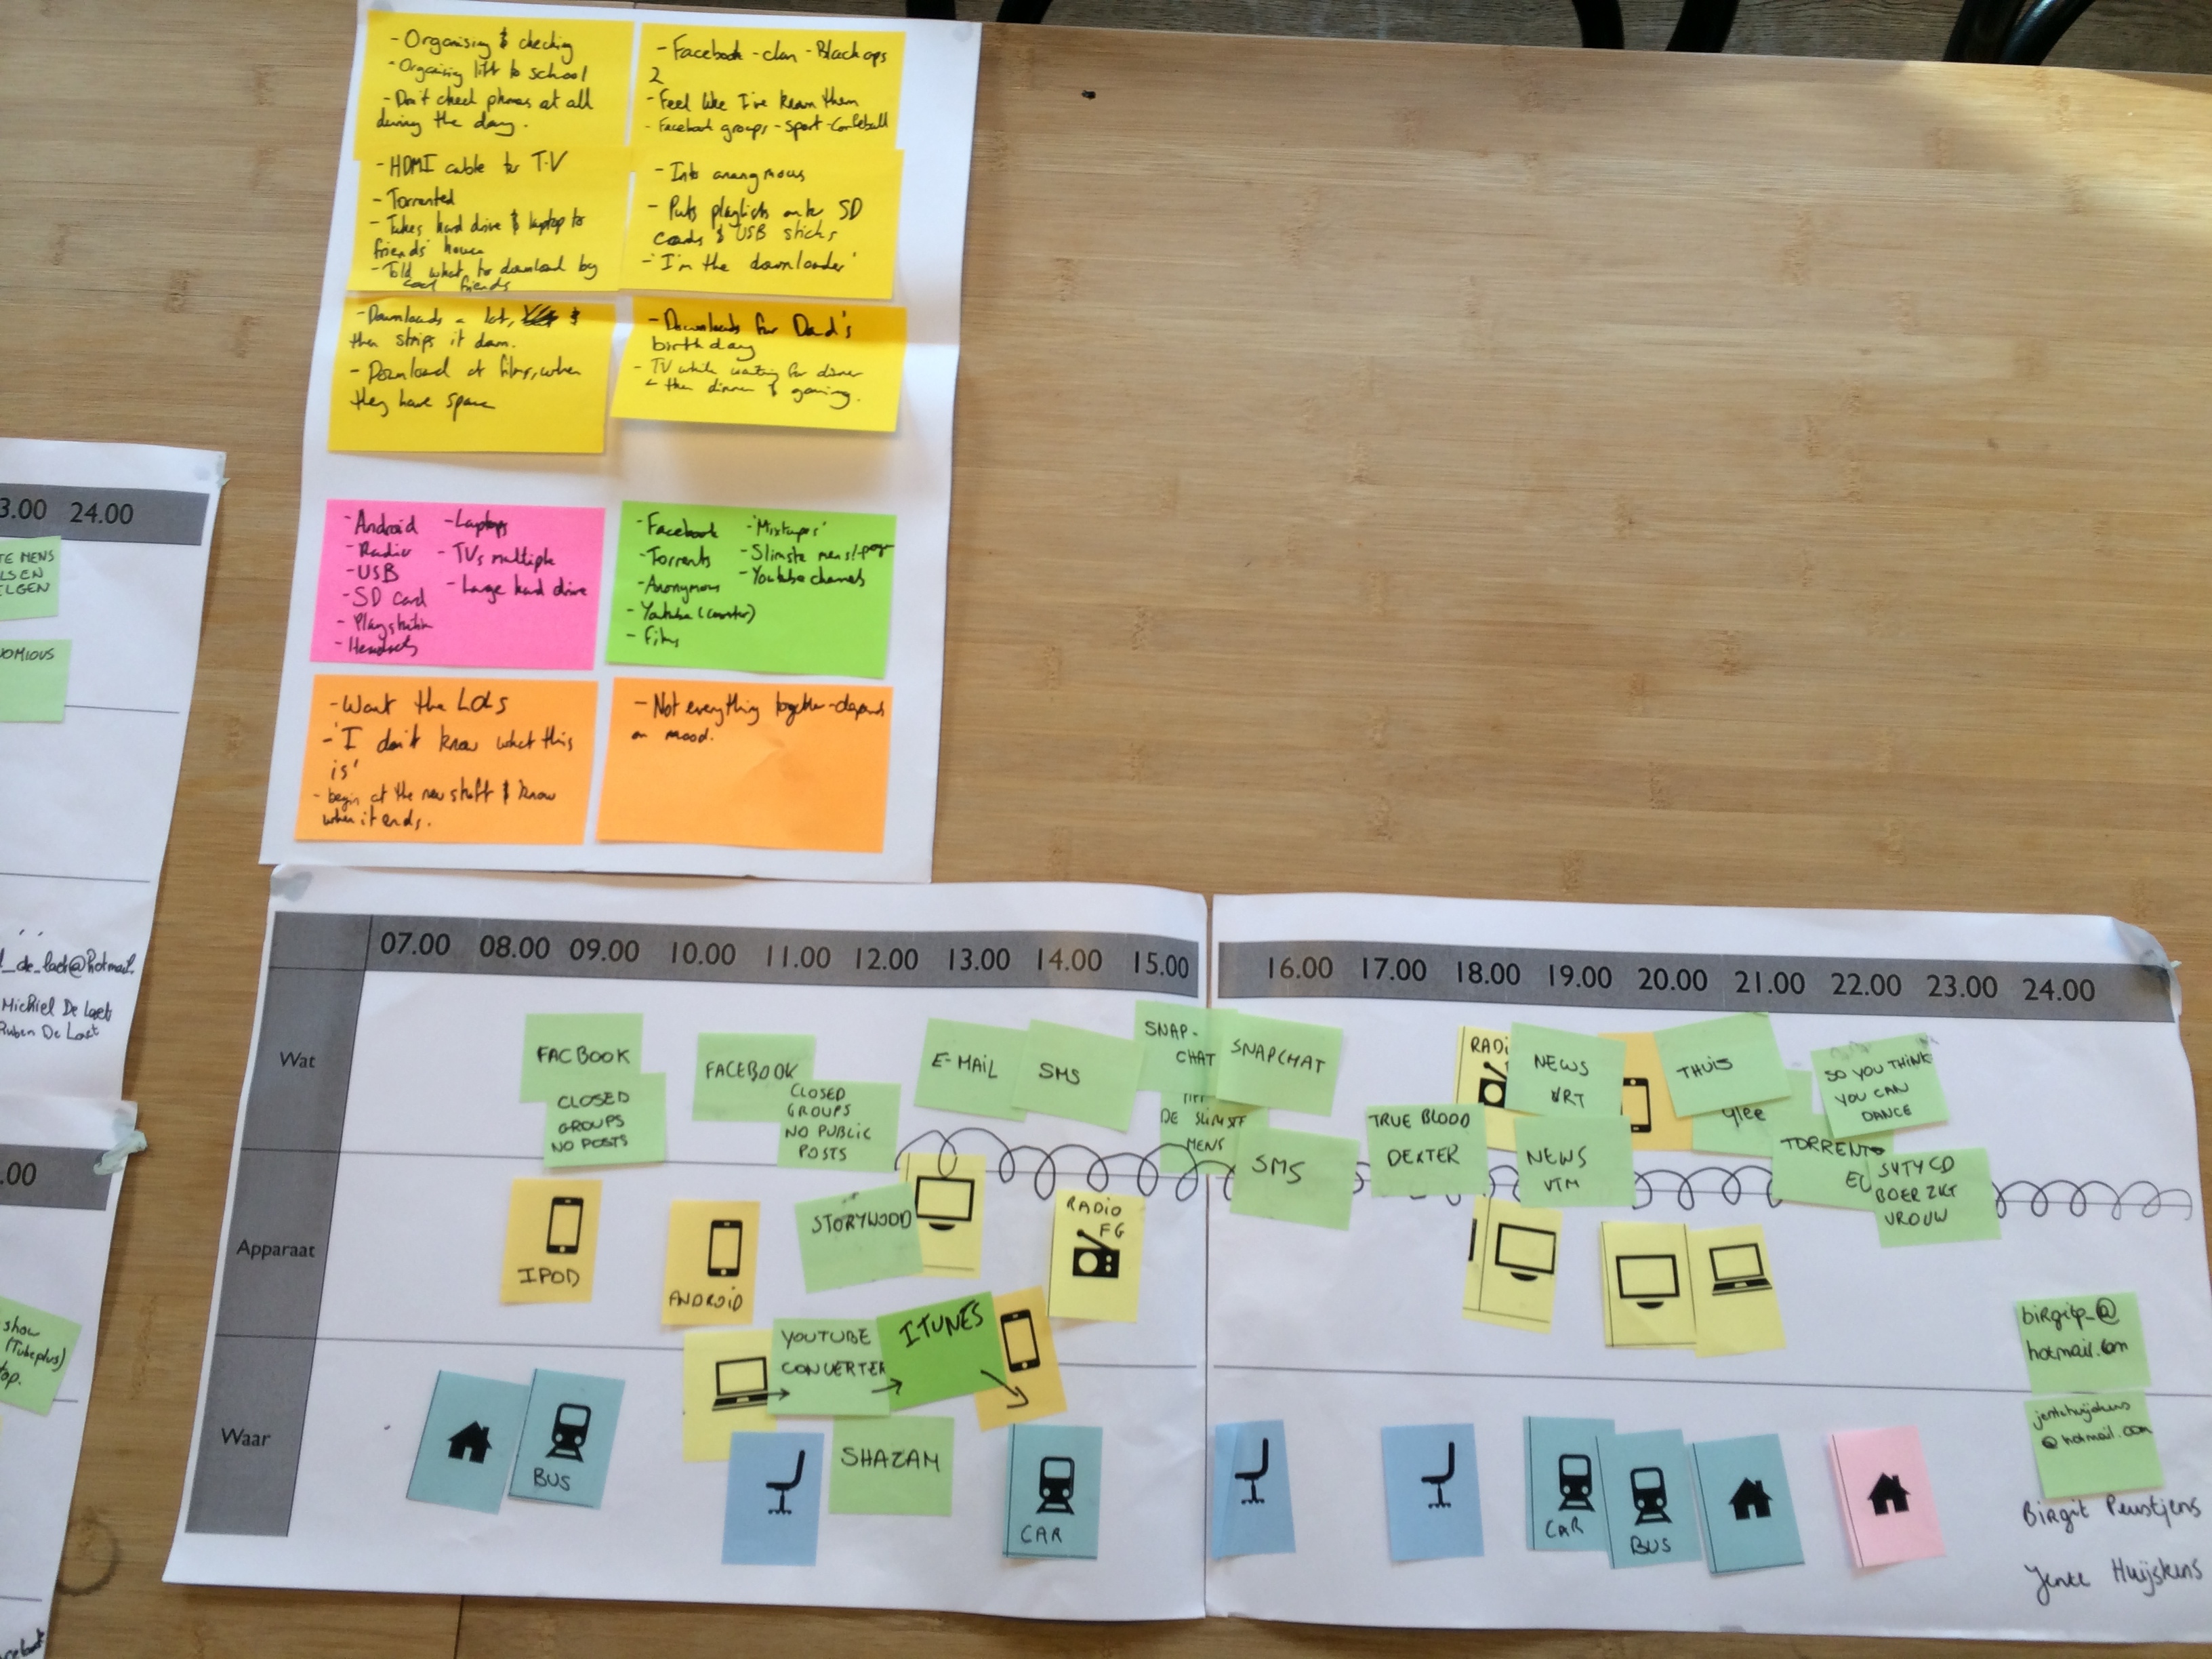 - Organising & checking
- Organising lift to school
- Don't check phones at all
during the day.
- Facebook - clan - Black ops
2
- Feel like I've known them
- Facebook groups - Sport -
- HDMI cable to TV
- Torrented
- Takes hard drive & laptop to
friends' house
- Told what to download by
cool friends
- Into anongmous
- Puts playlists onto SD
cards & USB sticks
- 'I'm the downloader'
- Downloads a lot,
then strips it down.
- Download of films, when
they have space
- Downloads for Dad's
birthday
- TV while waiting for dinner
then dinner & gaming.
- Android
- Radio
- USB
- SD Card
- Playstation
- Headsets
- Laptops
- TVs multiple
- Large hard drive
- Facebook
- Torrents
- Anonymous
- Youtube (converter)
- Films
- 'Mixtapes'
- Slimste mens
- Youtube channels
- Want the LOLs
- 'I don't know what this
is'
- begin at the new stuff & know
when it ends.
- Not everything together - depends
on mood.
3.00 24.00
TE MENS
LS EN
ELGEN
OMIOUS
_de_laet@hotmail.
Michiel De Laet
Ruben De Laet
.00
show
(Tubeplus)
top.
07.00 08.00 09.00 10.00 11.00 12.00 13.00 14.00 15.00 16.00 17.00 18.00 19.00 20.00 21.00 22.00 23.00 24.00
Wat
FACBOOK
CLOSED
GROUPS
NO POSTS
FACEBOOK
CLOSED
GROUPS
NO PUBLIC
POSTS
E-MAIL
SMS
SNAP-
CHAT
SNAPCHAT
DE SLIMSTE
MENS
SMS
TRUE BLOOD
DEXTER
RADI
NEWS
VRT
NEWS
VTM
THUIS
glee
TORRENTS
SO YOU THINK
YOU CAN
DANCE
SYTYCD
BOER ZKT
VROUW
Apparaat
IPOD
ANDROID
STORYWOOD
RADIO
FG
YOUTUBE
CONVERTER
ITUNES
SHAZAM
Waar
BUS
CAR
CAR
BUS
birgitp_@
hotmail.com
jentehuijskens
@hotmail.com
Birgit Peustjens
Jente Huijskens